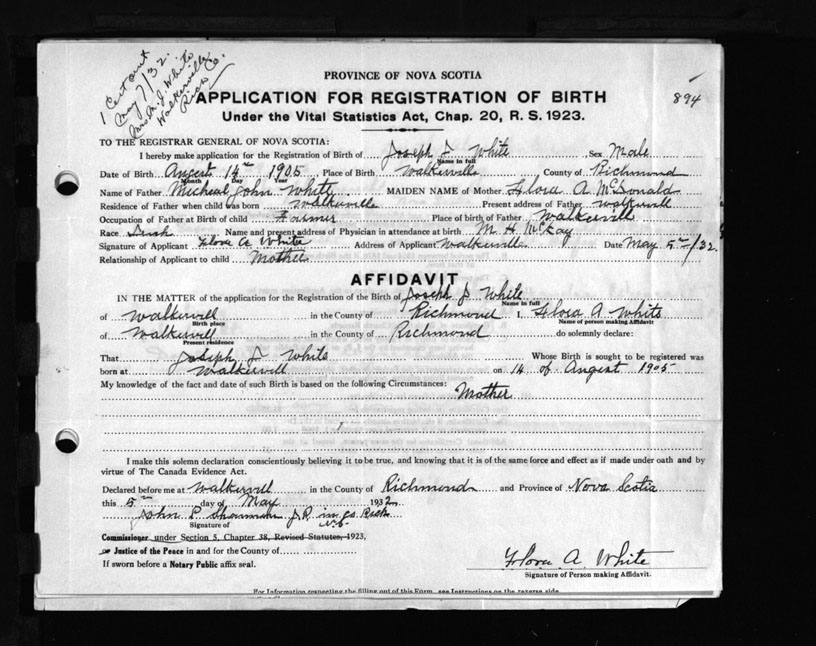 1 Cert sent
May 7/32.
Mrs M. J. White
Walkerville
Rich Co.
PROVINCE OF NOVA SCOTIA
894
APPLICATION FOR REGISTRATION OF BIRTH
Under the Vital Statistics Act, Chap. 20, R. S. 1923.
TO THE REGISTRAR GENERAL OF NOVA SCOTIA:
I hereby make application for the Registration of Birth of Joseph J White Sex Male
Name in full
Date of Birth Augest 14th 1905, Place of Birth Walkerville County of Richmond
Month Day Year
Name of Father Micheal John White MAIDEN NAME of Mother Flora A McDonald
Residence of Father when child was born Walkerville Present address of Father Walkervill
Occupation of Father at Birth of child Farmer Place of birth of Father Walkervill
Race Irish Name and present address of Physician in attendance at birth M H McKay
Signature of Applicant Flora A White Address of Applicant Walkerville Date May 5th/32.
Relationship of Applicant to child Mother
AFFIDAVIT
IN THE MATTER of the application for the Registration of the Birth of Joseph J White
Name in full
of Walkervill in the County of Richmond I, Flora A White
Birth place Name of person making Affidavit
of Walkervill in the County of Richmond do solemnly declare:
Present residence
That Joseph J White Whose Birth is sought to be registered was
born at Walkervill on 14 of Augest 1905
My knowledge of the fact and date of such Birth is based on the following Circumstances: Mother
I make this solemn declaration conscientiously believing it to be true, and knowing that it is of the same force and effect as if made under oath and by
virtue of The Canada Evidence Act.
Declared before me at Walkervill in the County of Richmond and Province of Nova Scotia
this 5th day of May 1932
John P J.P. in Co. Rich
Signature of
Commissioner under Section 5, Chapter 38, Revised Statutes, 1923,
or Justice of the Peace in and for the County of
If sworn before a Notary Public affix seal.
Flora A. White
Signature of Person making Affidavit.
For Information respecting the filling out of this Form, see Instructions on the reverse side